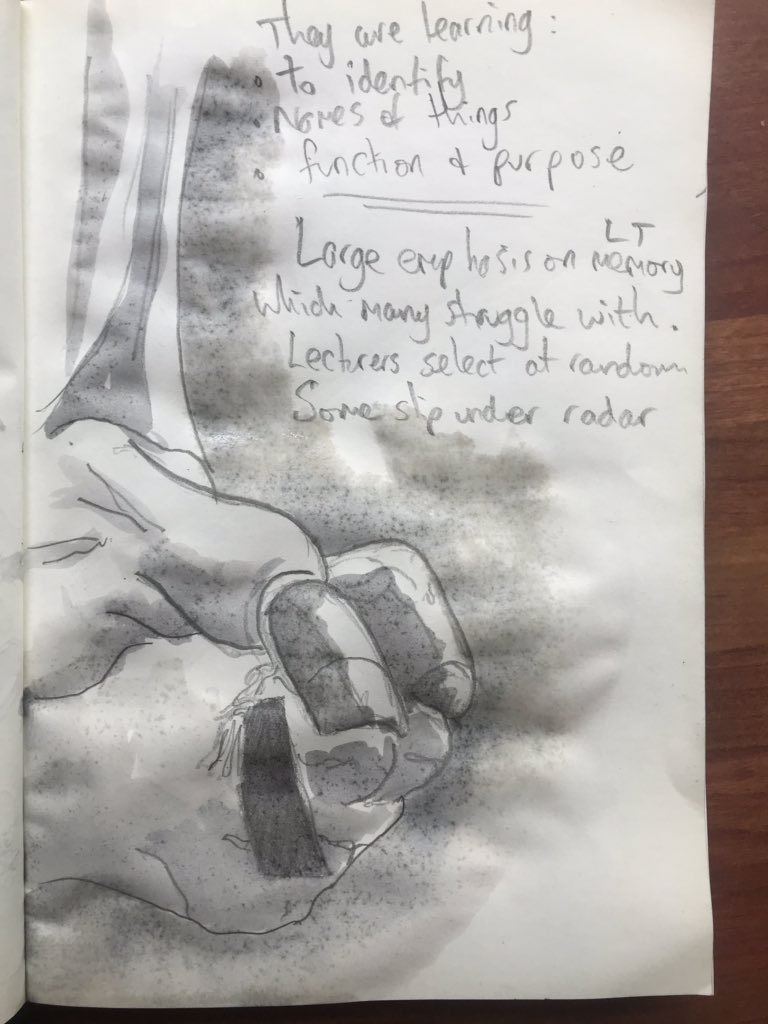 They are learning:
• to identify
• Names of things
• function & purpose
LT
Large emphasis on memory
which many struggle with.
Lectrers select at random
Some slip under radar